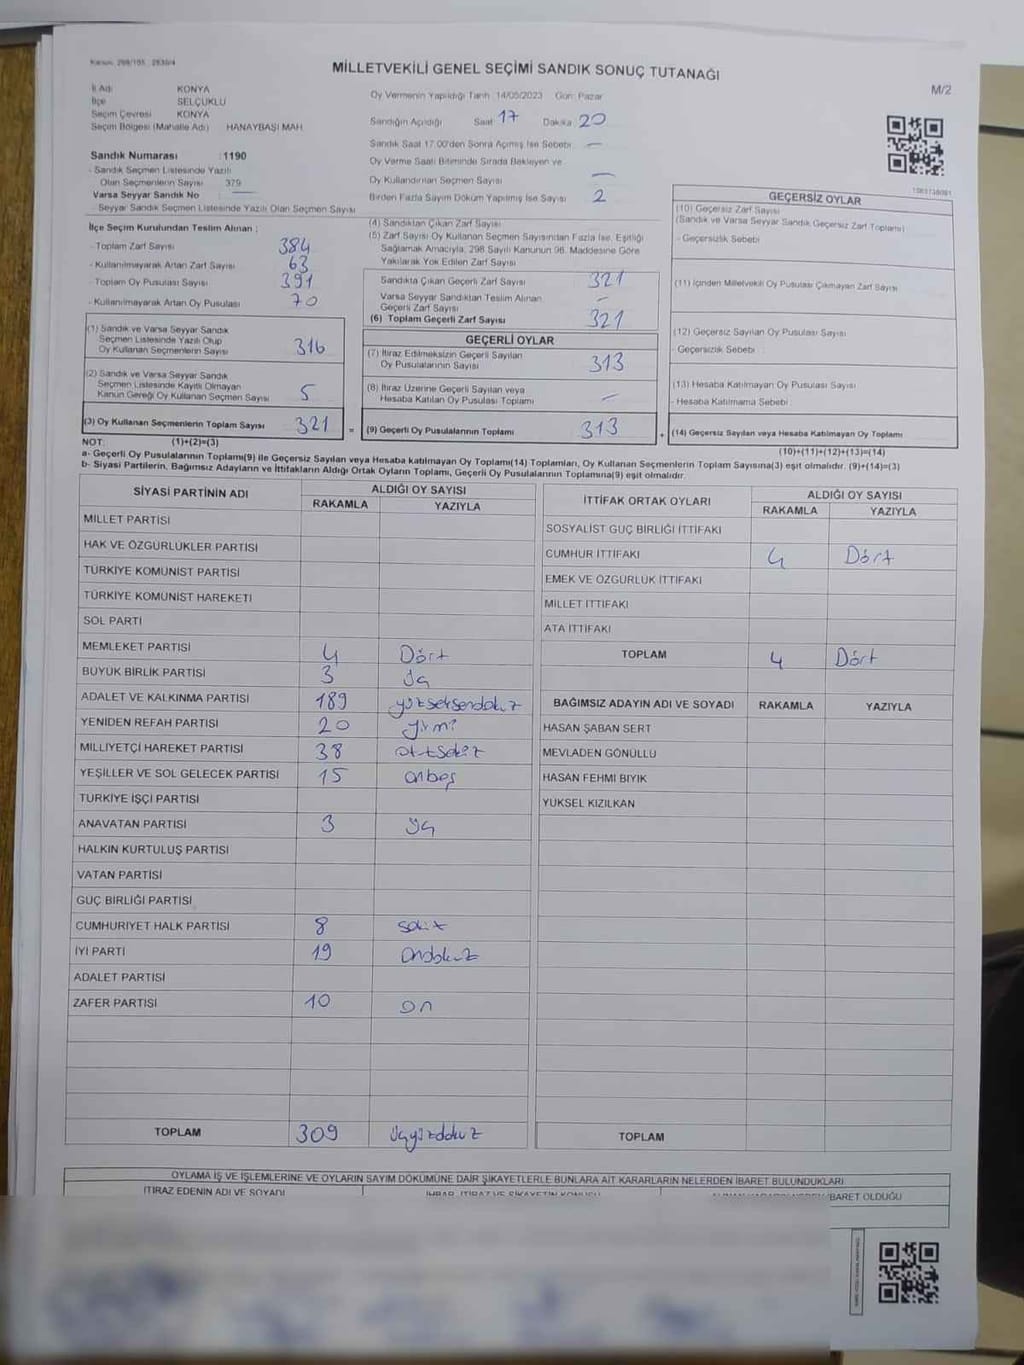 Kanun: 298/105, 2839/4
MİLLETVEKİLİ GENEL SEÇİMİ SANDIK SONUÇ TUTANAĞI
M/2
İl Adı KONYA
İlçe SELÇUKLU
Seçim Çevresi KONYA
Seçim Bölgesi (Mahalle Adı) HANAYBAŞI MAH.
Sandık Numarası :1190
- Sandık Seçmen Listesinde Yazılı
Olan Seçmenlerin Sayısı 379
Varsa Seyyar Sandık No
- Seyyar Sandık Seçmen Listesinde Yazılı Olan Seçmen Sayısı
Oy Vermenin Yapıldığı Tarih :14/05/2023 Gün: Pazar
Sandığın Açıldığı Saat 17 Dakika 20
Sandık Saat 17.00'den Sonra Açılmış İse Sebebi —
Oy Verme Saati Bitiminde Sırada Bekleyen ve
Oy Kullandırılan Seçmen Sayısı —
Birden Fazla Sayım Döküm Yapılmış İse Sayısı 2
İlçe Seçim Kurulundan Teslim Alınan ;
- Toplam Zarf Sayısı 384
- Kullanılmayarak Artan Zarf Sayısı 63
- Toplam Oy Pusulası Sayısı 391
- Kullanılmayarak Artan Oy Pusulası 70
(1) Sandık ve Varsa Seyyar Sandık
Seçmen Listesinde Yazılı Olup
Oy Kullanan Seçmenlerin Sayısı 316
(2) Sandık ve Varsa Seyyar Sandık
Seçmen Listesinde Kayıtlı Olmayan
Kanun Gereği Oy Kullanan Seçmen Sayısı 5
(3) Oy Kullanan Seçmenlerin Toplam Sayısı 321 =
(4) Sandıktan Çıkan Zarf Sayısı
(5) Zarf Sayısı Oy Kullanan Seçmen Sayısından Fazla İse, Eşitliği
Sağlamak Amacıyla, 298 Sayılı Kanunun 98. Maddesine Göre
Yakılarak Yok Edilen Zarf Sayısı
Sandıkta Çıkan Geçerli Zarf Sayısı 321
Varsa Seyyar Sandıktan Teslim Alınan
Geçerli Zarf Sayısı —
(6) Toplam Geçerli Zarf Sayısı 321
GEÇERLİ OYLAR
(7) İtiraz Edilmeksizin Geçerli Sayılan
Oy Pusulalarının Sayısı 313
(8) İtiraz Üzerine Geçerli Sayılan veya
Hesaba Katılan Oy Pusulası Toplamı —
(9) Geçerli Oy Pusulalarının Toplamı 313 +
GEÇERSİZ OYLAR
(10) Geçersiz Zarf Sayısı
(Sandık ve Varsa Seyyar Sandık Geçersiz Zarf Toplamı)
- Geçersizlik Sebebi
(11) İçinden Milletvekili Oy Pusulası Çıkmayan Zarf Sayısı
(12) Geçersiz Sayılan Oy Pusulası Sayısı
- Geçersizlik Sebebi :
(13) Hesaba Katılmayan Oy Pusulası Sayısı
- Hesaba Katılmama Sebebi :
(14) Geçersiz Sayılan veya Hesaba Katılmayan Oy Toplamı
NOT: (1)+(2)=(3)
(10)+(11)+(12)+(13)=(14)
a- Geçerli Oy Pusulasının Toplamı(9) ile Geçersiz Sayılan veya Hesaba katılmayan Oy Toplamı(14) Toplamları, Oy Kullanan Seçmenlerin Toplam Sayısına(3) eşit olmalıdır. (9)+(14)=(3)
b- Siyasi Partilerin, Bağımsız Adayların ve İttifakların Aldığı Ortak Oyların Toplamı, Geçerli Oy Pusulalarının Toplamına(9) eşit olmalıdır.
SİYASİ PARTİNİN ADI ALDIĞI OY SAYISI
RAKAMLA YAZIYLA
MİLLET PARTİSİ
HAK VE ÖZGÜRLÜKLER PARTİSİ
TÜRKİYE KOMÜNİST PARTİSİ
TÜRKİYE KOMÜNİST HAREKETİ
SOL PARTİ
MEMLEKET PARTİSİ 4 Dört
BÜYÜK BİRLİK PARTİSİ 3 üç
ADALET VE KALKINMA PARTİSİ 189 yüzseksendokuz
YENİDEN REFAH PARTİSİ 20 yirmi
MİLLİYETÇİ HAREKET PARTİSİ 38 otuzsekiz
YEŞİLLER VE SOL GELECEK PARTİSİ 15 onbeş
TÜRKİYE İŞÇİ PARTİSİ
ANAVATAN PARTİSİ 3 üç
HALKIN KURTULUŞ PARTİSİ
VATAN PARTİSİ
GÜÇ BİRLİĞİ PARTİSİ
CUMHURİYET HALK PARTİSİ 8 sekiz
İYİ PARTİ 19 ondokuz
ADALET PARTİSİ
ZAFER PARTİSİ 10 on
TOPLAM 309 üçyüzdokuz
İTTİFAK ORTAK OYLARI ALDIĞI OY SAYISI
RAKAMLA YAZIYLA
SOSYALİST GÜÇ BİRLİĞİ İTTİFAKI
CUMHUR İTTİFAKI 4 Dört
EMEK VE ÖZGÜRLÜK İTTİFAKI
MİLLET İTTİFAKI
ATA İTTİFAKI
TOPLAM 4 Dört
BAĞIMSIZ ADAYIN ADI VE SOYADI RAKAMLA YAZIYLA
HASAN ŞABAN SERT
MEVLADEN GÖNÜLLÜ
HASAN FEHMİ BIYIK
YÜKSEL KIZILKAN
TOPLAM
OYLAMA İŞ VE İŞLEMLERİNE VE OYLARIN SAYIM DÖKÜMÜNE DAİR ŞİKAYETLERLE BUNLARA AİT KARARLARIN NELERDEN İBARET BULUNDUKLARI
İTİRAZ EDENİN ADI VE SOYADI
İHBAR, İTİRAZ VE ŞİKAYETİN KONUSU
İBARET OLDUĞU